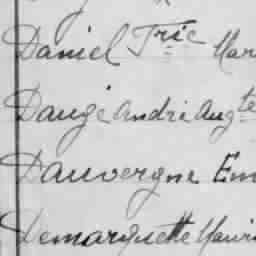 Daniel Fric Mar
Daugé André Aug te
Dauvergne Em
Demarquette Mauri